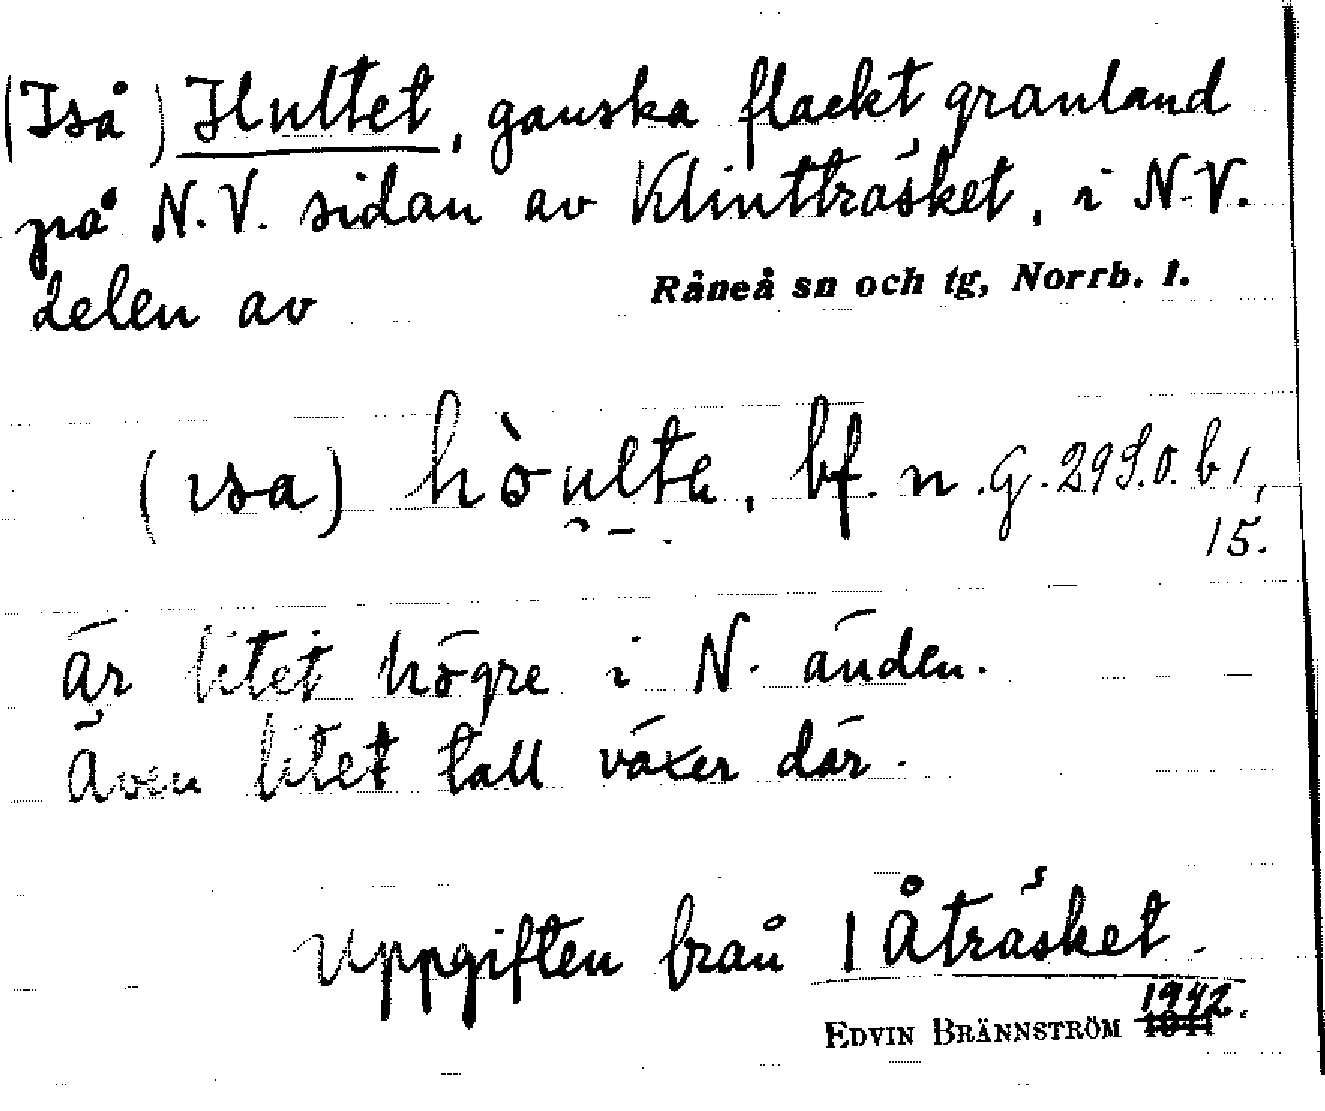 (Iså) Hultet, ganska flackt granland
på N.V. sidan av Klintträsket, i N.V.
delen av Råneå sn och tg, Norrb. l.
(ısa) hòulte, bf. n. G. 29 S.O. b 1,
15.
är litet högre i N. änden.
Även litet tall växer där.
Uppgiften från Åträsket.
1942.
EDVIN BRÄNNSTRÖM 1941